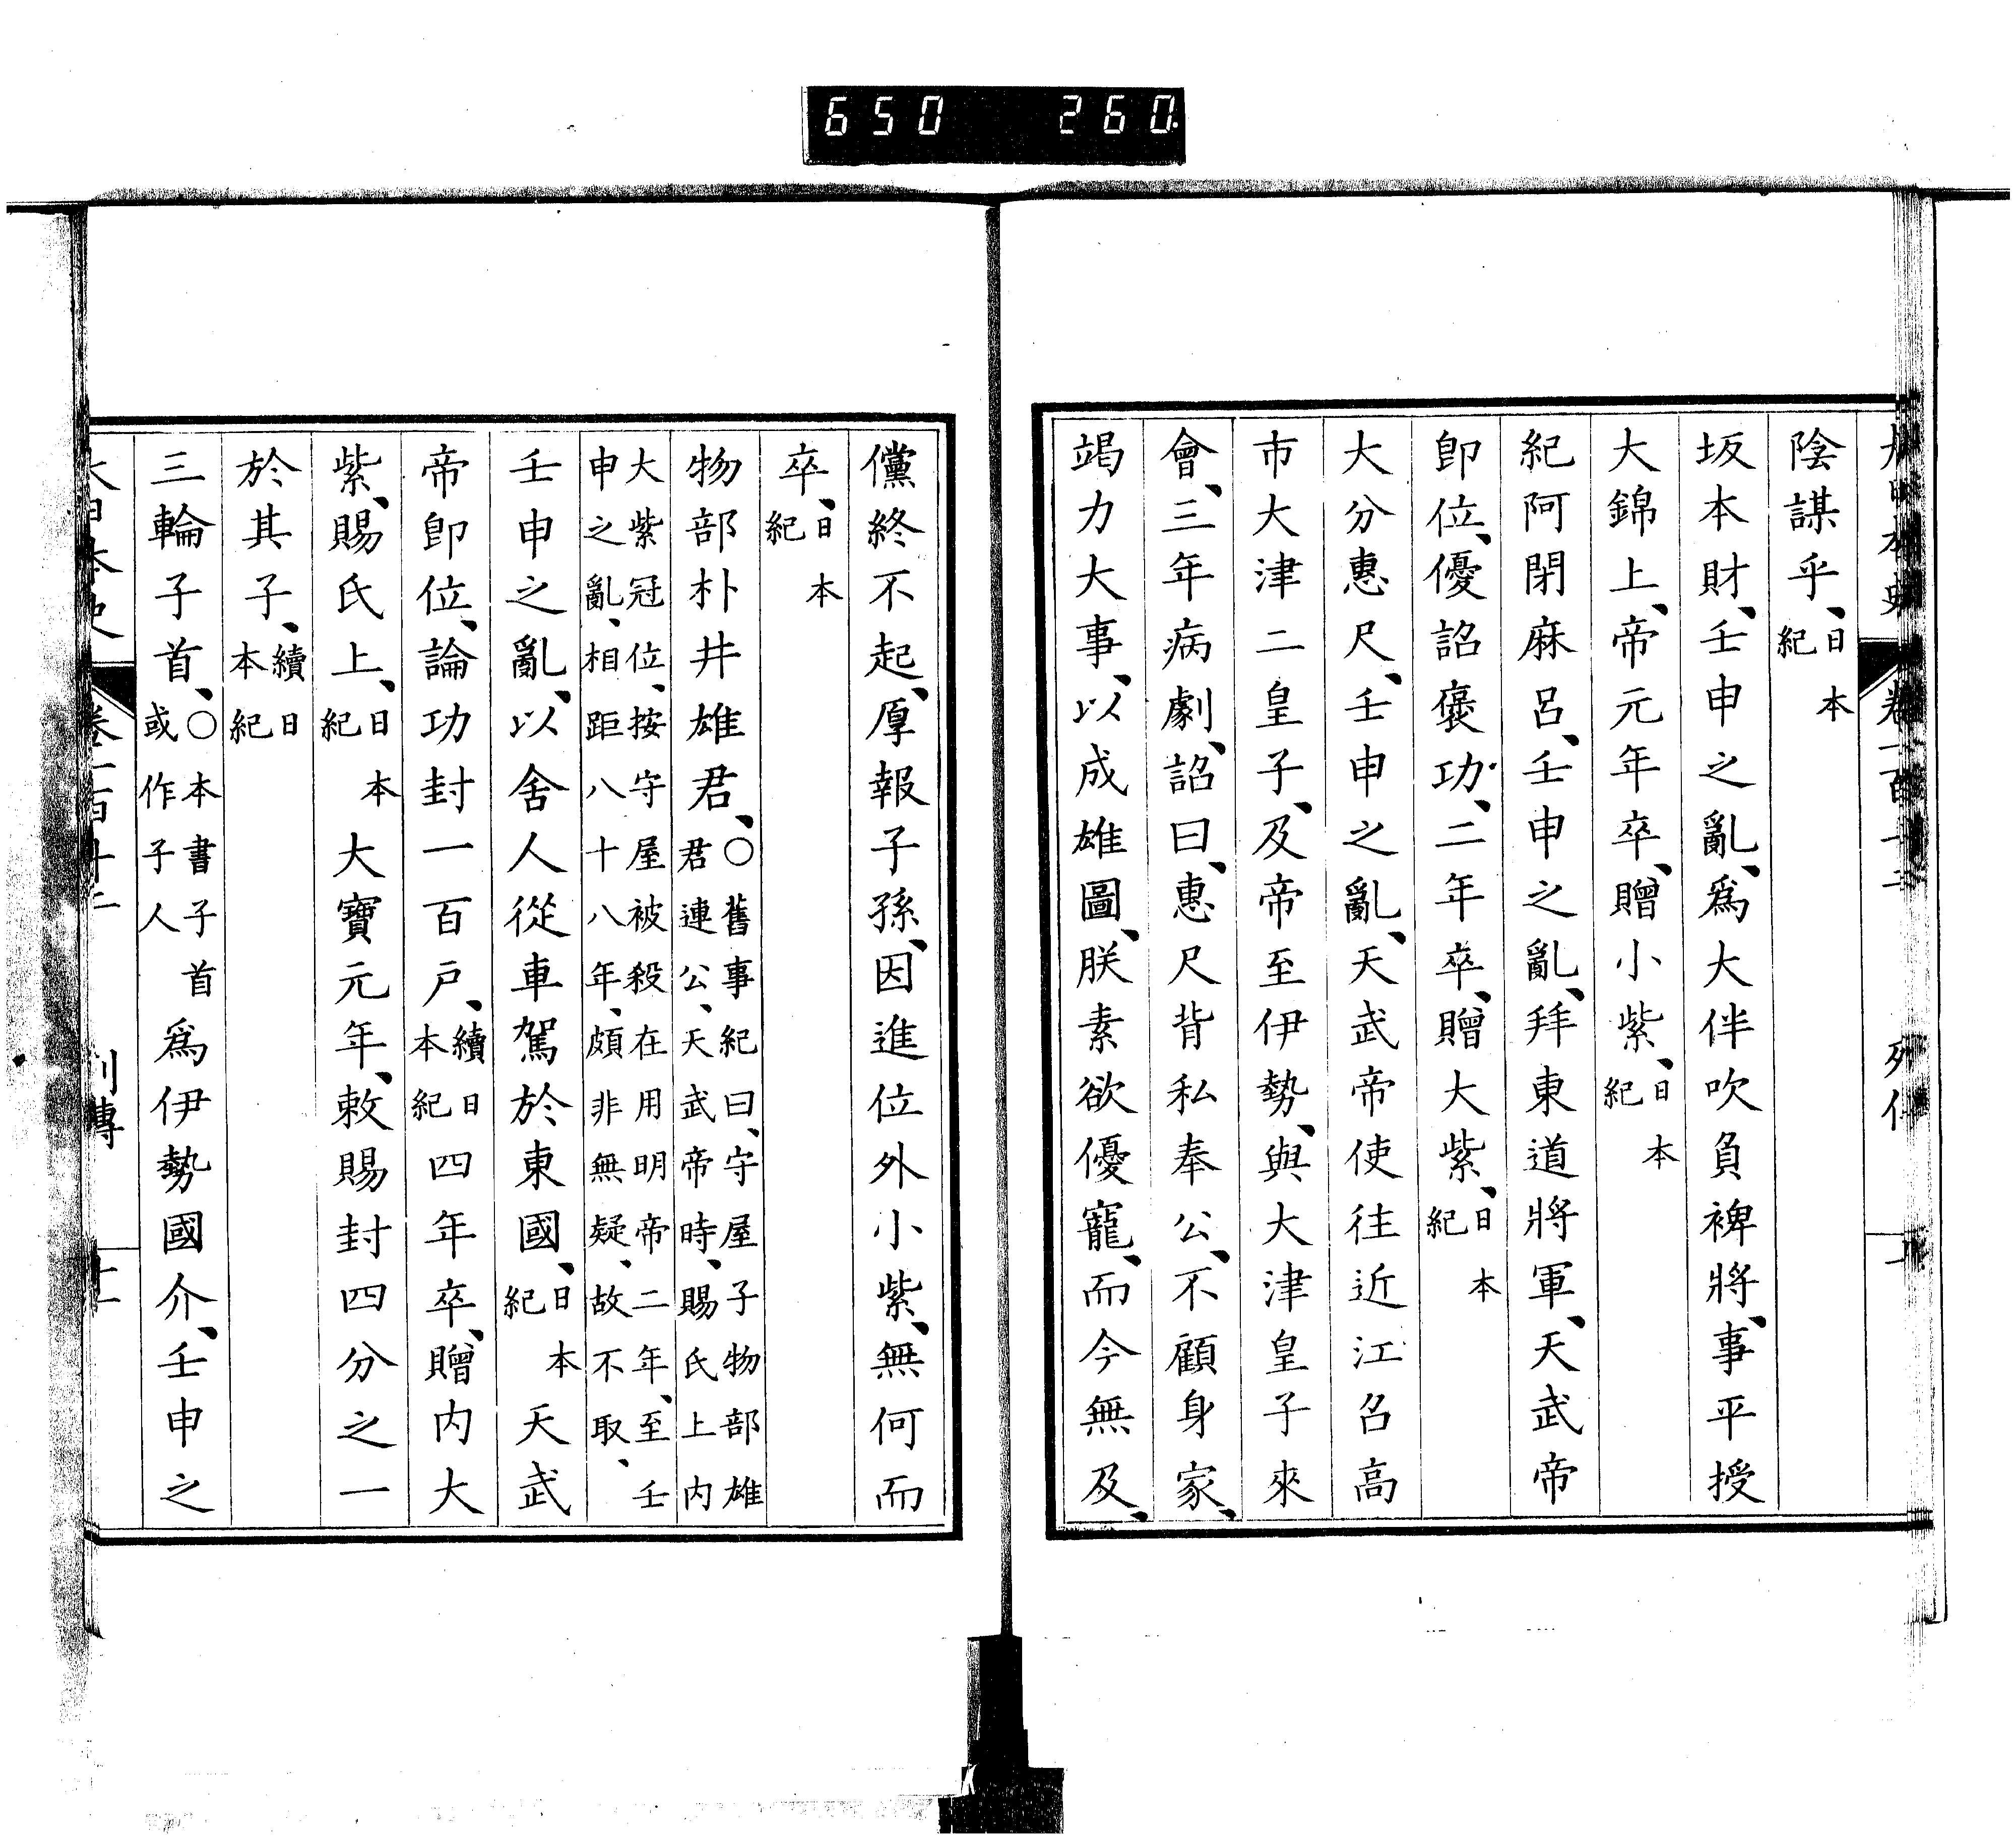 650 260
陰謀乎、日本紀
坂本財、壬申之亂、爲大伴吹負裨將、事平授
大錦上、帝元年卒、贈小紫、日本紀
紀阿閉麻呂、壬申之亂、拜東道將軍、天武帝
卽位、優詔褒功、二年卒、贈大紫、日本紀
大分惠尺、壬申之亂、天武帝使往近江召高
市大津二皇子、及帝至伊勢、與大津皇子來
會、三年病劇、詔曰、惠尺背私奉公、不顧身家、
竭力大事、以成雄圖、朕素欲優寵、而今無及、
儻終不起、厚報子孫、因進位外小紫、無何而
卒、日本紀
物部朴井雄君、〇舊事紀曰、守屋子物部雄君連公、天武帝時、賜氏上内
大紫冠位、按守屋被殺在用明帝二年、至壬申之亂、相距八十八年、頗非無疑、故不取、
壬申之亂、以舍人從車駕於東國、日本紀天武
帝卽位、論功封一百戸、續日本紀四年卒、贈内大
紫、賜氏上、日本紀大寶元年、敕賜封四分之一
於其子、續日本紀
三輪子首、〇本書子首或作子人爲伊勢國介、壬申之
大日本史 卷一百十二 列傳